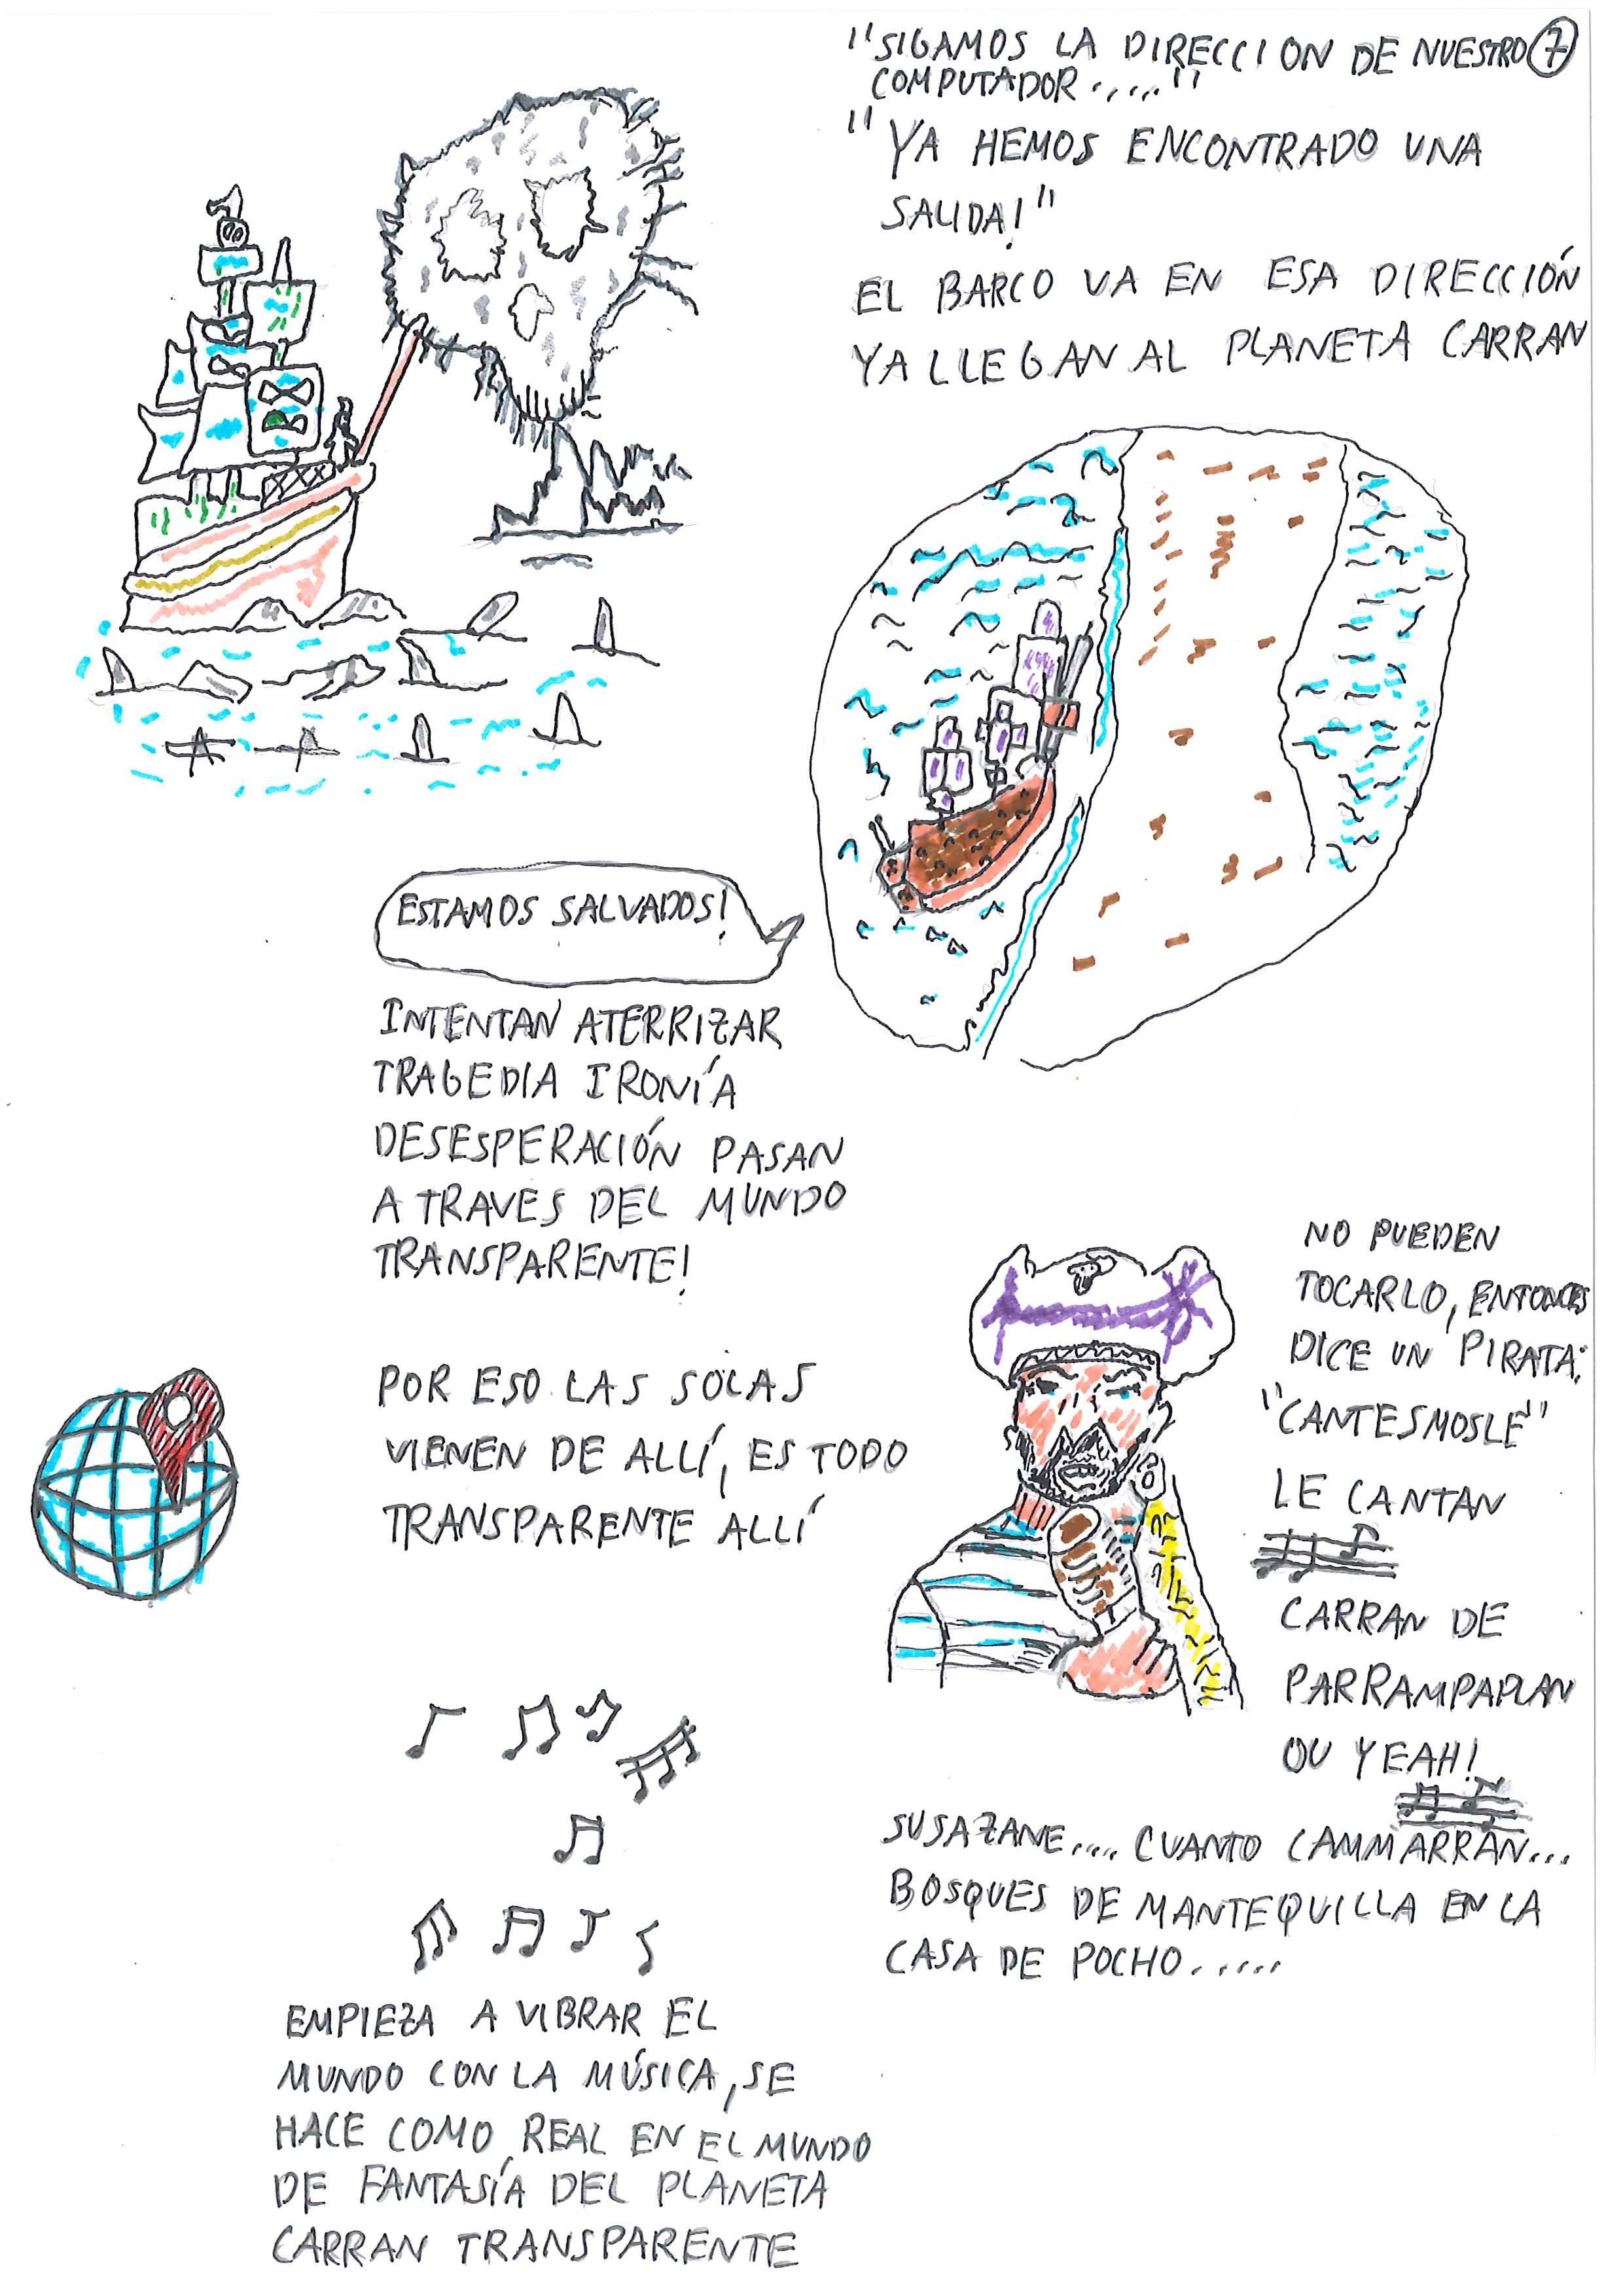 "SIGAMOS LA DIRECCION DE NUESTRO 7
COMPUTADOR....."
"YA HEMOS ENCONTRADO UNA
SALIDA!"
EL BARCO VA EN ESA DIRECCIÓN
YA LLEGAN AL PLANETA CARRAN
ESTAMOS SALVADOS!
INTENTAN ATERRIZAR
TRAGEDIA IRONÍA
DESESPERACIÓN PASAN
A TRAVES DEL MUNDO
TRANSPARENTE!
POR ESO LAS SOLAS
VIENEN DE ALLÍ, ES TODO
TRANSPARENTE ALLÍ
NO PUEDEN
TOCARLO, ENTONCES
DICE UN PIRATA:
"CANTESMOSLE"
LE CANTAN
CARRAN DE
PARRAMPAPLAN
OU YEAH!
SUSAZANE.... CUANTO CAMMARRAN...
BOSQUES DE MANTEQUILLA EN LA
CASA DE POCHO.....
EMPIEZA A VIBRAR EL
MUNDO CON LA MÚSICA, SE
HACE COMO REAL EN EL MUNDO
DE FANTASÍA DEL PLANETA
CARRAN TRANSPARENTE